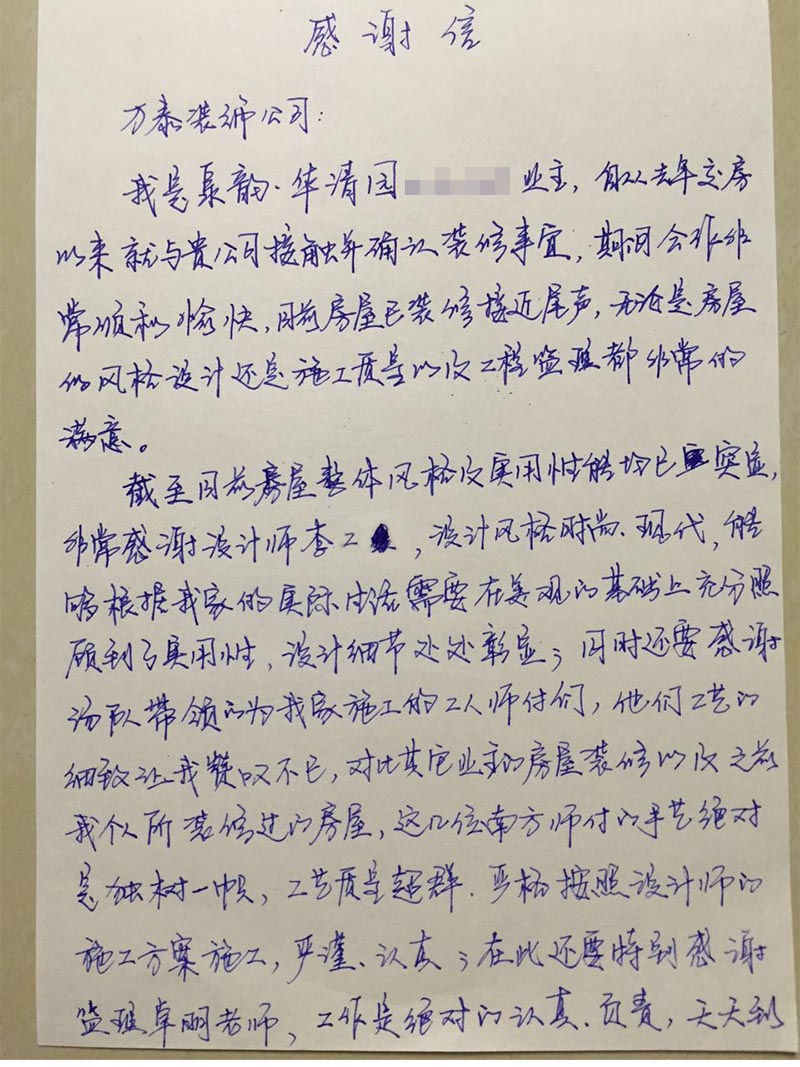 感谢信
万泰装饰公司:
我是泉韵·华清园 业主，自从去年交房
以来就与贵公司接触并确认装修事宜，期间合作非
常顺利愉快，目前房屋已装修接近尾声，无论是房屋
的风格设计还是施工质量以及工程监理都非常的
满意。
截至目前房屋整体风格及实用性能均已突显，
非常感谢设计师李工，设计风格时尚、现代，能
够根据我家的实际生活需要在美观的基础上充分照
顾到了实用性，设计细节处处彰显；同时还要感谢
汤队带领的为我家施工的工人师付们，他们工艺的
细致让我赞叹不已，对比其它业主的房屋装修以及之前
我们所装修过的房屋，这几位南方师付的手艺绝对
是独树一帜，工艺质量超群、严格按照设计师的
施工方案施工，严谨、认真；在此还要特别感谢
监理卓明老师，工作是绝对的认真、负责，天天到